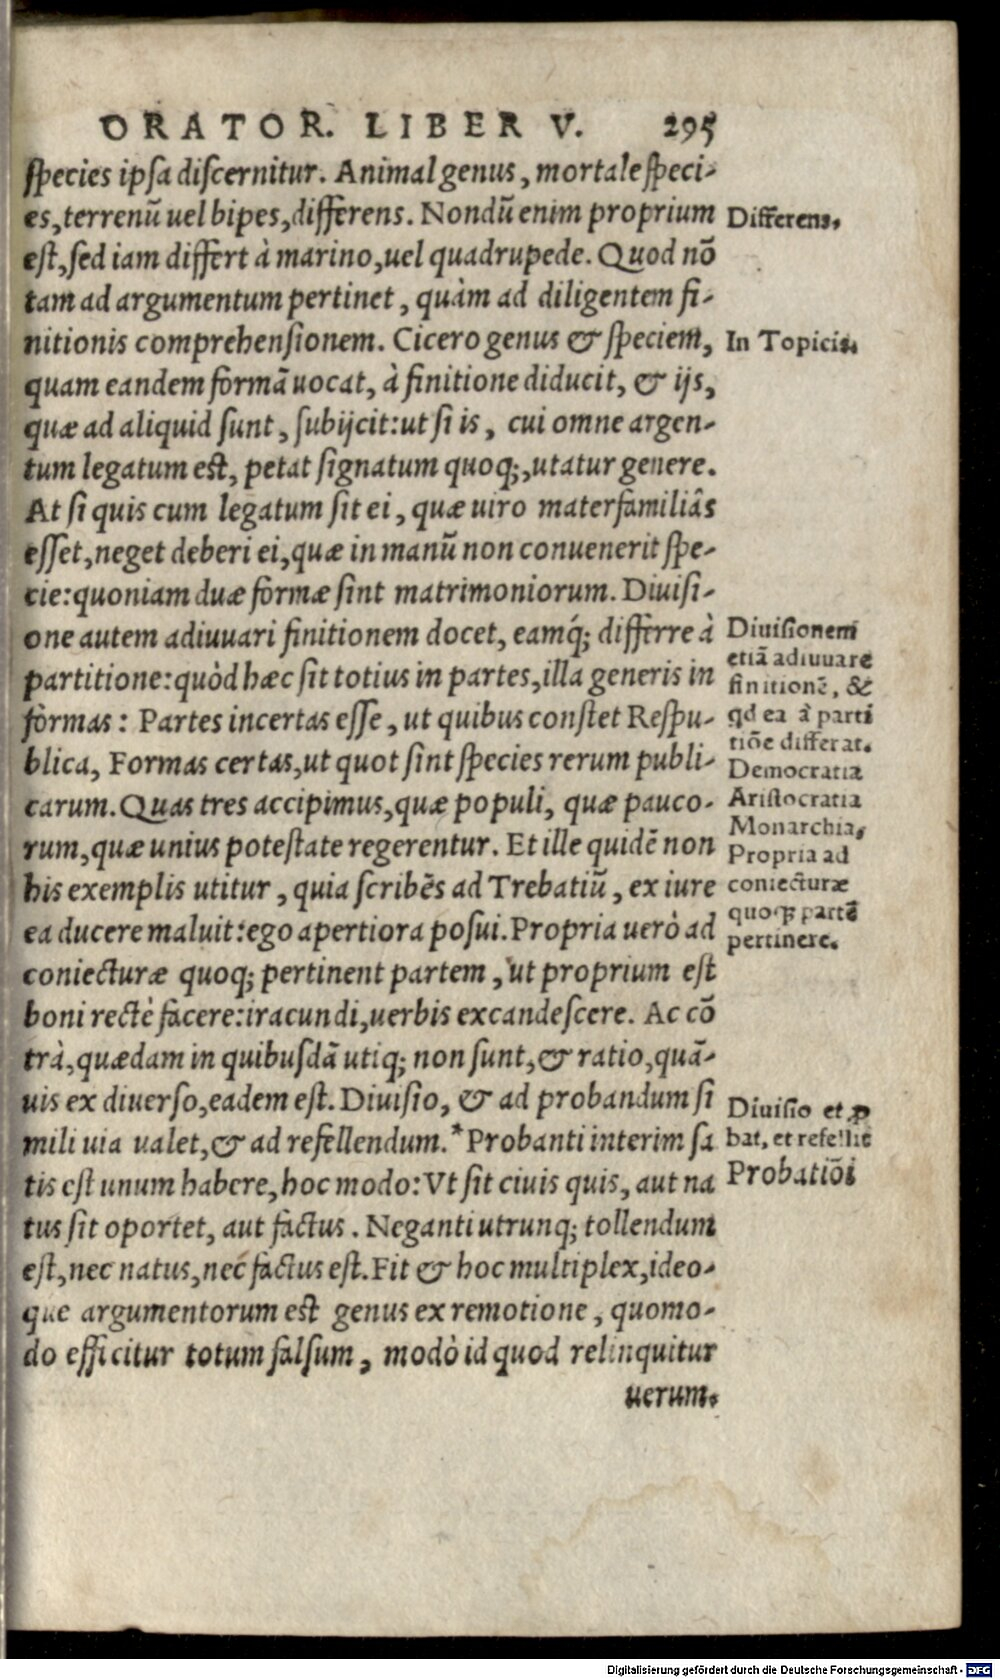 ORATOR. LIBER V. 295
species ipsa discernitur. Animal genus, mortale speci-
es, terrenū uel bipes, differens. Nondū enim proprium
est, sed iam differt à marino, uel quadrupede. Quod nō
tam ad argumentum pertinet, quàm ad diligentem fi-
nitionis comprehensionem. Cicero genus & speciem,
quam eandem formā uocat, à finitione diducit, & ijs,
quæ ad aliquid sunt, subijcit: ut si is, cui omne argen-
tum legatum est, petat signatum quoq;, utatur genere.
At si quis cum legatum sit ei, quæ uiro materfamiliâs
esset, neget deberi ei, quæ in manū non conuenerit spe-
cie: quoniam duæ formæ sint matrimoniorum. Diuisi-
one autem adiuuari finitionem docet, eamq́; differre à
partitione: quòd hæc sit totius in partes, illa generis in
formas: Partes incertas esse, ut quibus constet Respu-
blica, Formas certas, ut quot sint species rerum publi-
carum. Quas tres accipimus, quæ populi, quæ pauco-
rum, quæ unius potestate regerentur. Et ille quidē non
his exemplis utitur, quia scribēs ad Trebatiū, ex iure
ea ducere maluit: ego apertiora posui. Propria uerò ad
coniecturæ quoq; pertinent partem, ut proprium est
boni rectè facere: iracundi, uerbis excandescere. Ac cō
trà, quædam in quibusdā utiq; non sunt, & ratio, quā-
uis ex diuerso, eadem est. Diuisio, & ad probandum si
mili uia ualet, & ad refellendum.* Probanti interim sa
tis est unum habere, hoc modo: Vt sit ciuis quis, aut na
tus sit oportet, aut factus. Neganti utrunq; tollendum
est, nec natus, nec factus est. Fit & hoc multiplex, ideo-
que argumentorum est genus ex remotione, quomo-
do efficitur totum falsum, modò id quod relinquitur
uerum.
Differens.
In Topicis.
Diuisionem
etiā adiuuare
finitionē, &
qd ea à parti
tiōe differat.
Democratia
Aristocratia
Monarchia,
Propria ad
coniecturæ
quoq; partē
pertinere.
Diuisio et ꝓ
bat, et refellit
Probatiōi
Digitalisierung gefördert durch die Deutsche Forschungsgemeinschaft - DFG